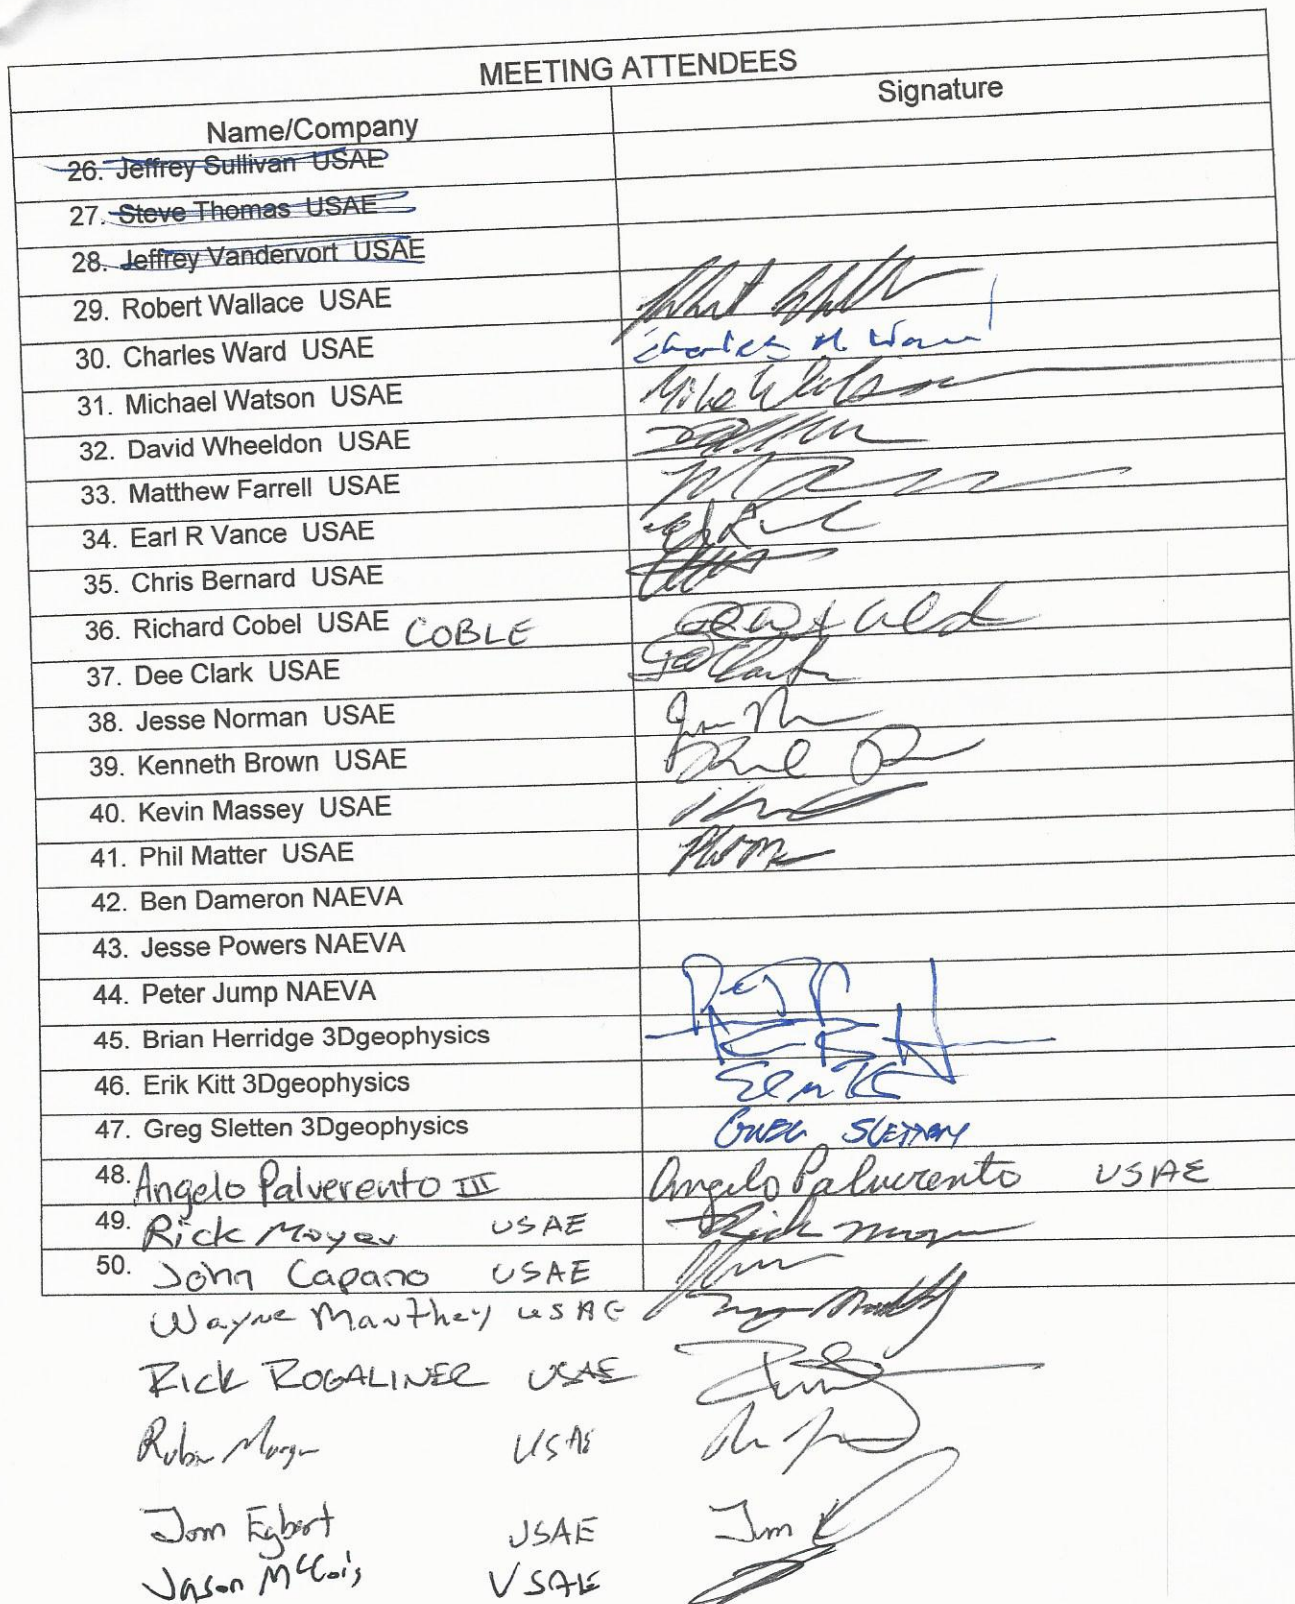 MEETING ATTENDEES
Name/Company Signature
26. Jeffrey Sullivan USAE
27. Steve Thomas USAE
28. Jeffrey Vandervort USAE
29. Robert Wallace USAE
30. Charles Ward USAE Charles M Ward
31. Michael Watson USAE Mike Watson
32. David Wheeldon USAE
33. Matthew Farrell USAE
34. Earl R Vance USAE
35. Chris Bernard USAE
36. Richard Cobel USAE COBLE
37. Dee Clark USAE Clark
38. Jesse Norman USAE
39. Kenneth Brown USAE
40. Kevin Massey USAE
41. Phil Matter USAE
42. Ben Dameron NAEVA
43. Jesse Powers NAEVA
44. Peter Jump NAEVA
45. Brian Herridge 3Dgeophysics
46. Erik Kitt 3Dgeophysics
47. Greg Sletten 3Dgeophysics GREG SLETTEN
48. Angelo Palverento III Angelo Palverento USAE
49. Rick Moyer USAE Rick Moyer
50. John Capano USAE
Wayne Manthey USAE
RICK ROGALINER USAE
Morgan USAE
Egbert USAE
Jason USAE